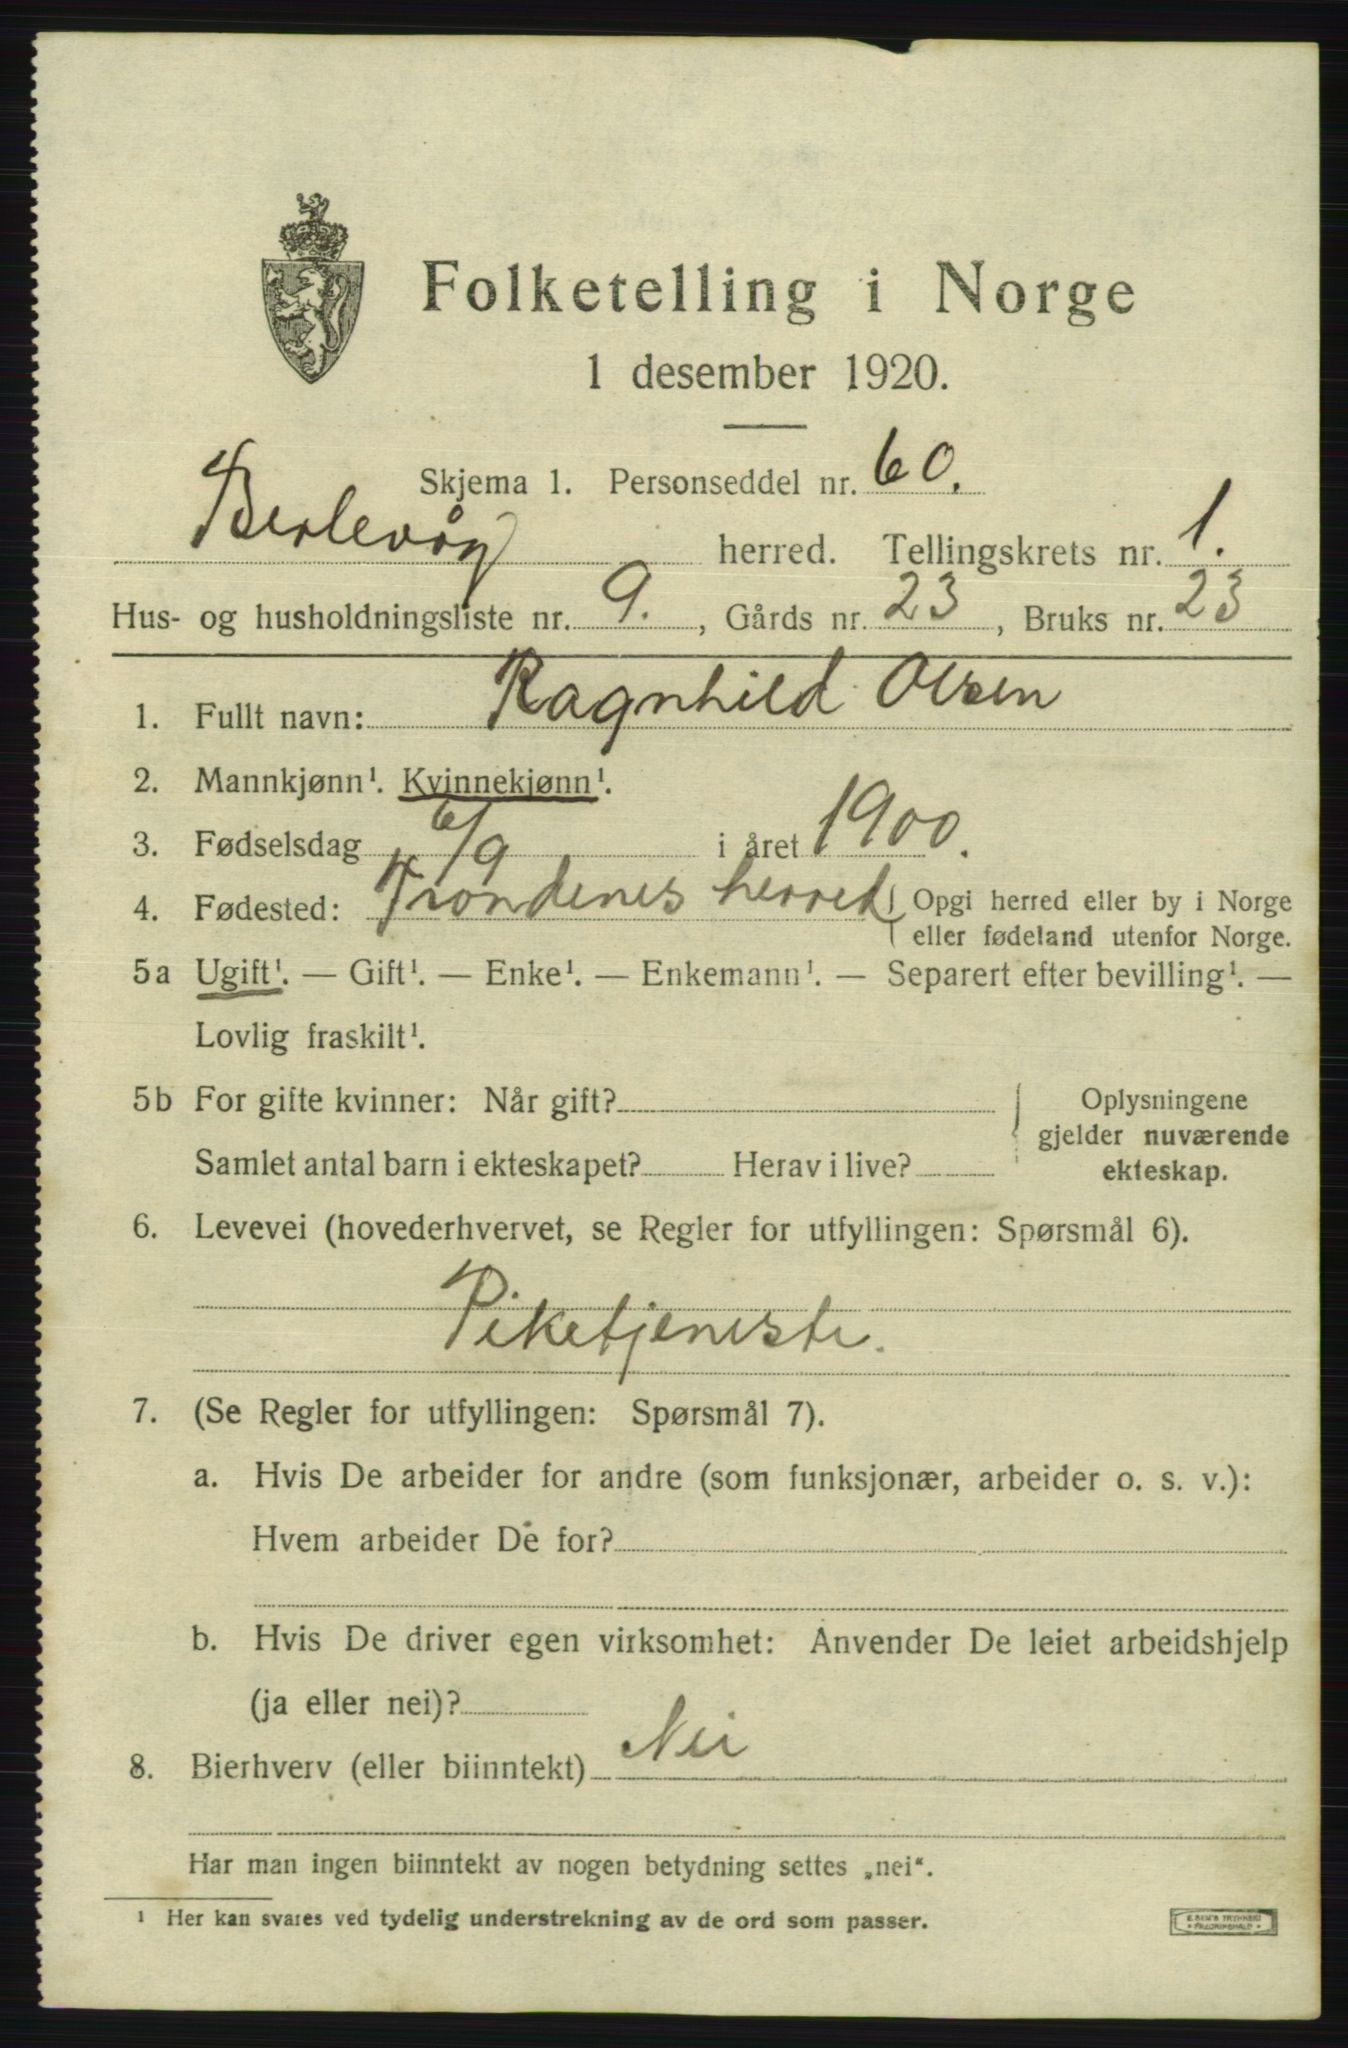 Folketelling i Norge
1 desember 1920.
Skjema 1. Personseddel nr. 60.
Berlevåg herred. Tellingskrets nr. 1.
Hus- og husholdningsliste nr. 9., Gårds nr. 23, Bruks nr. 23
1. Fullt navn: Ragnhild Olsen
2. Mannkjønn¹. Kvinnekjønn¹.
3. Fødselsdag 6/9 i året 1900.
4. Fødested: Trondenes herred Opgi herred eller by i Norge
eller fødeland utenfor Norge.
5a Ugift¹. — Gift¹. — Enke¹. — Enkemann¹. — Separert efter bevilling¹. —
Lovlig fraskilt¹.
5b For gifte kvinner: Når gift? Oplysningene
gjelder nuværende
Samlet antal barn i ekteskapet? Herav i live? ekteskap.
6. Levevei (hovederhvervet, se Regler for utfyllingen: Spørsmål 6).
Piketjeneste.
7. (Se Regler for utfyllingen: Spørsmål 7).
a. Hvis De arbeider for andre (som funksjonær, arbeider o. s. v.):
Hvem arbeider De for?
b. Hvis De driver egen virksomhet: Anvender De leiet arbeidshjelp
(ja eller nei)?
8. Bierhverv (eller biinntekt) Nei
Har man ingen biinntekt av nogen betydning settes „nei“.
¹ Her kan svares ved tydelig understrekning av de ord som passer.